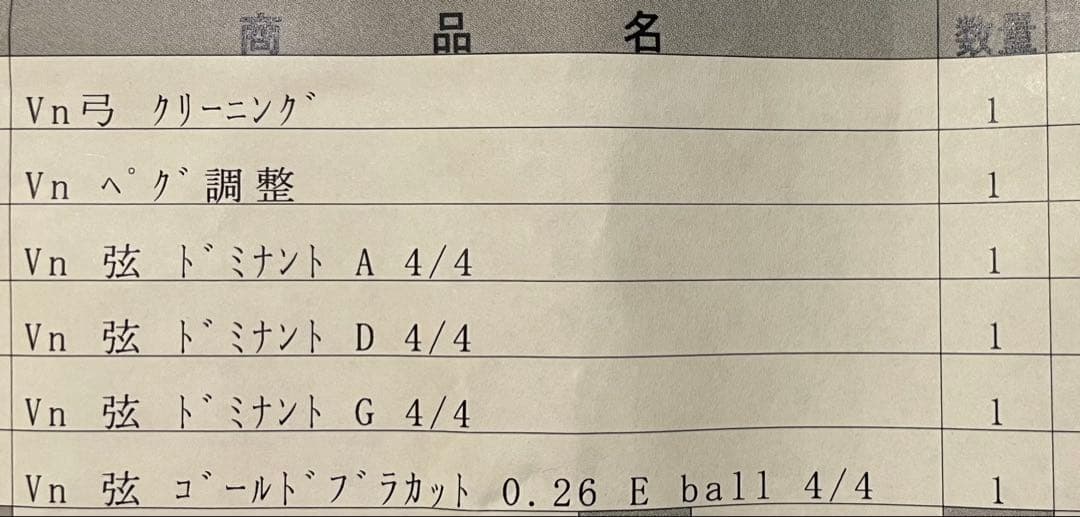 商品名 数量
Vn弓 ｸﾘｰﾆﾝｸﾞ 1
Vn ﾍﾟｸﾞ調整 1
Vn 弦 ﾄﾞﾐﾅﾝﾄ A 4/4 1
Vn 弦 ﾄﾞﾐﾅﾝﾄ D 4/4 1
Vn 弦 ﾄﾞﾐﾅﾝﾄ G 4/4 1
Vn 弦 ｺﾞｰﾙﾄﾞﾌﾞﾗｶｯﾄ 0.26 E ball 4/4 1